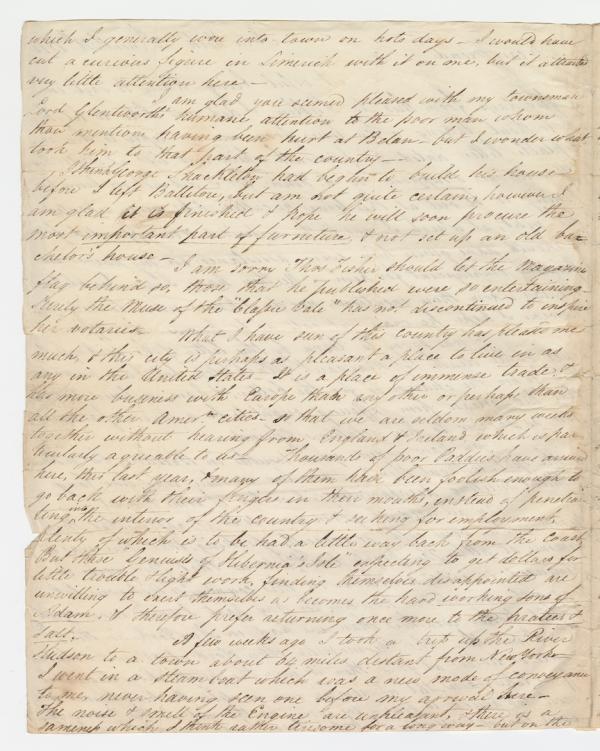 which I generally wore into town on hot days – I would have
cut a curious figure in Limerick with it on me, but it attracted
very little attention here –
I am glad you seemed pleased with my townsman
Lord Glentworth's humane attention to the poor man whom
thou mentions having been hurt at Belan – but I wonder what
took him to that part of the country –
I think George Shackleton had begun to build his house
before I left Ballitore, but am not quite certain, however I
am glad it is finished & hope he will soon procure the
most important part of furniture, & not set up an old ba=
chelor's house –
I am sorry Thos Fisher should let the Magazine
flag behind so, those that he published were so entertaining –
Surely the Muse of the "Classic Vale" has not discontinued to inspire
her votaries –
What I have seen of this country has pleased me
much, & this city is perhaps as pleasant a place to live in as
any in the United States It is a place of immense trade, &
has more business with Europe than any other or perhaps than
all the other Amern cities – so that we are seldom many weeks
together without hearing from England & Ireland which is par
ticularly agreeable to us – Thousands of poor Paddies have arrived
here, this last year, & many of them have been foolish enough to
go back with their fingers in their mouths, instead of penetra=
ting into the interior of the country & seeking for employment,
plenty of which is to be had a little way back from the Coast
But these "Geniuses of Hibernia's Isle" expecting to get dollars for
little trouble & light work, finding themselves disappointed are
unwilling to exert themselves as becomes the hard working sons of
Adam, & therefore prefer returning once more to the praties &
salt.
A few weeks ago I took a trip up the River
Hudson to a town about 64 miles distant from New York –
I went in a steam boat which was a new mode of conveyance
to me, never having seen one before my arrival here –
The noise & smell of the Engine are unpleasant, & there is a
sameness which I think rather tiresome for a long way – but on the